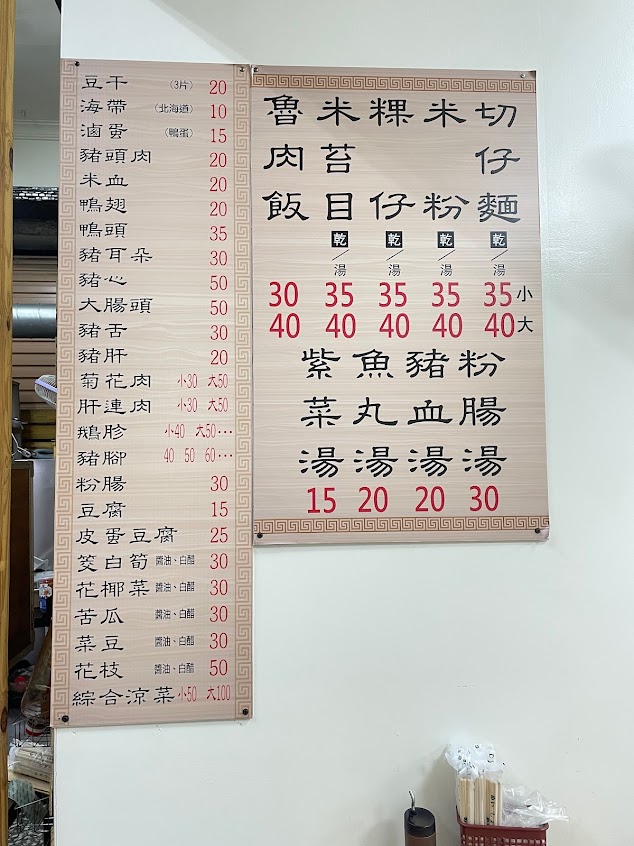 豆干 (3片) 20
海帶 (北海道) 10
滷蛋 (鴨蛋) 15
豬頭肉 20
米血 20
鴨翅 20
鴨頭 35
豬耳朵 30
豬心 50
大腸頭 50
豬舌 30
豬肝 20
菊花肉 小30 大50
肝連肉 小30 大50
鵝胗 小40 大50···
豬腳 40 50 60···
粉腸 30
豆腐 15
皮蛋豆腐 25
筊白筍 醬油、白醋 30
花椰菜 醬油、白醋 30
苦瓜 醬油、白醋 30
菜豆 醬油、白醋 30
花枝 醬油、白醋 50
綜合涼菜 小50 大100
切仔麵 乾/湯 35小 40大
米粉 乾/湯 35 40
粿仔 乾/湯 35 40
米苔目 乾/湯 35 40
魯肉飯 30 40
粉腸湯 30
豬血湯 20
魚丸湯 20
紫菜湯 15